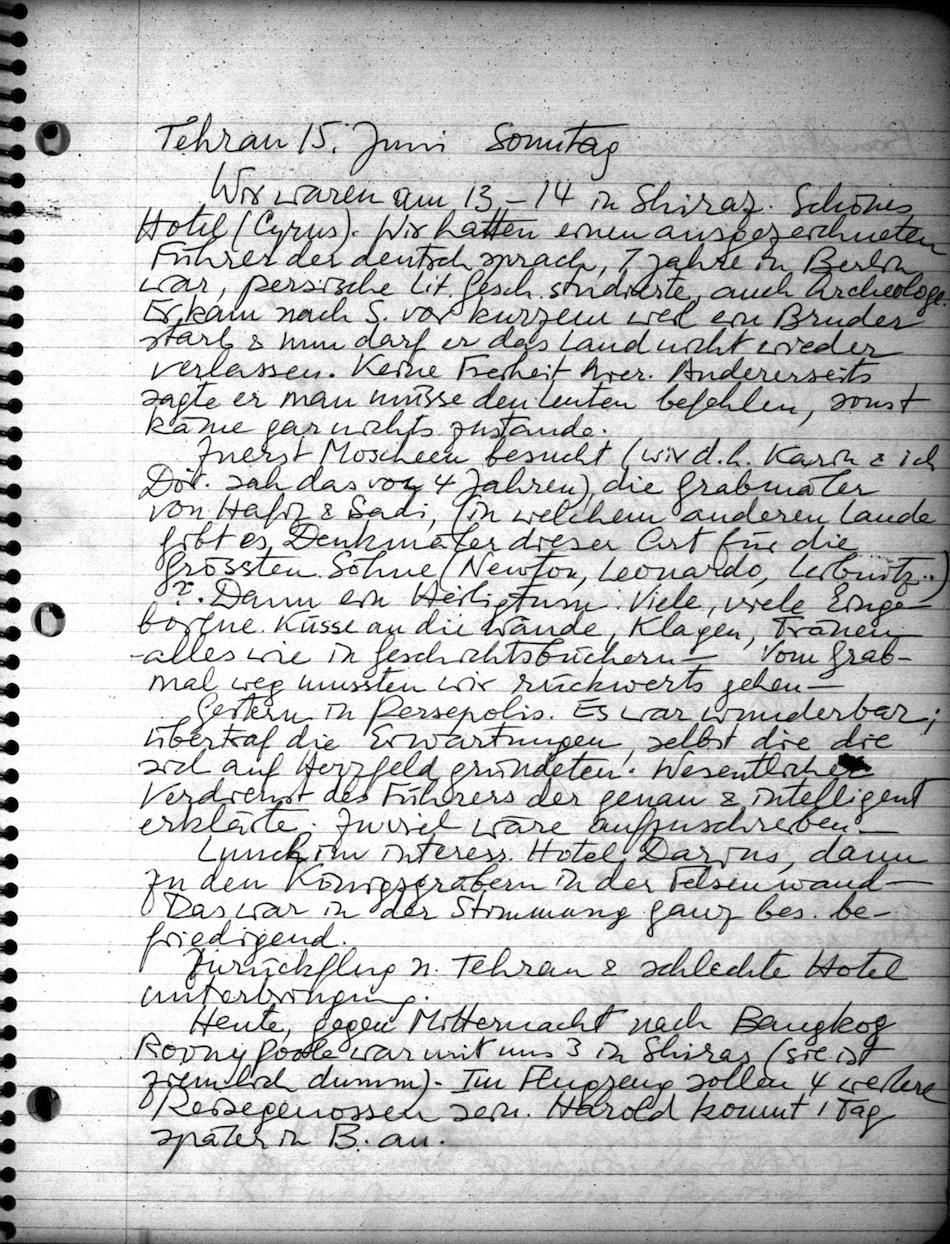 Tehran 15. Juni Sonntag
Wir waren am 13–14 in Shiraz. Schönes
Hotel (Cyrus). Wir hatten einen ausgezeichneten
Führer der deutsch sprach, 7 Jahre in Berlin
war, persische Lit. Gesch. studierte, auch Archeologe
Er kam nach S. vor kurzem weil ein Bruder
starb & nun darf er das Land nicht wieder
verlassen. Keine Freiheit hier. Andererseits
sagte er man müsse den Leuten befehlen, sonst
käme gar nichts zustande.
Zuerst Moscheen besucht (wir d.h. Karin & ich
Dor. sah das vor 4 Jahren), die Grabmäler
von Hafiz & Sadi, (in welchem anderen Lande
gibt es Denkmäler dieser Art für die
grössten Söhne (Newton, Leonardo, Leibnitz..)
?. Dann ein Heiligtum. Viele, viele Einge-
borene. Küsse an die Wände, Klagen, Tränen
– alles wie in Geschichtsbüchern – Vom Grab-
mal weg mussten wir rückwerts gehen –
Gestern in Persepolis. Es war wunderbar;
übertraf die Erwartungen, selbst die die
sich auf Herzfeld gründeten. Wesentlicher
Verdienst des Führers der genau & intelligent
erklärte. Zuviel wäre aufzuschreiben –
Lunch im interess. Hotel Darius, dann
zu den Königsgräbern in der Felsenwand –
Das war in der Stimmung ganz bes. be-
friedigend.
Zurückflug n. Tehran & schlechte Hotel
unterbringung.
Heute, gegen Mitternacht nach Bangkog
Poole war mit uns 3 in Shiraz (sie ist
ziemlich dumm). Im Flugzeug sollen 4 weitere
Reisegenossen sein. Harold kommt 1 Tag
später in B. an.